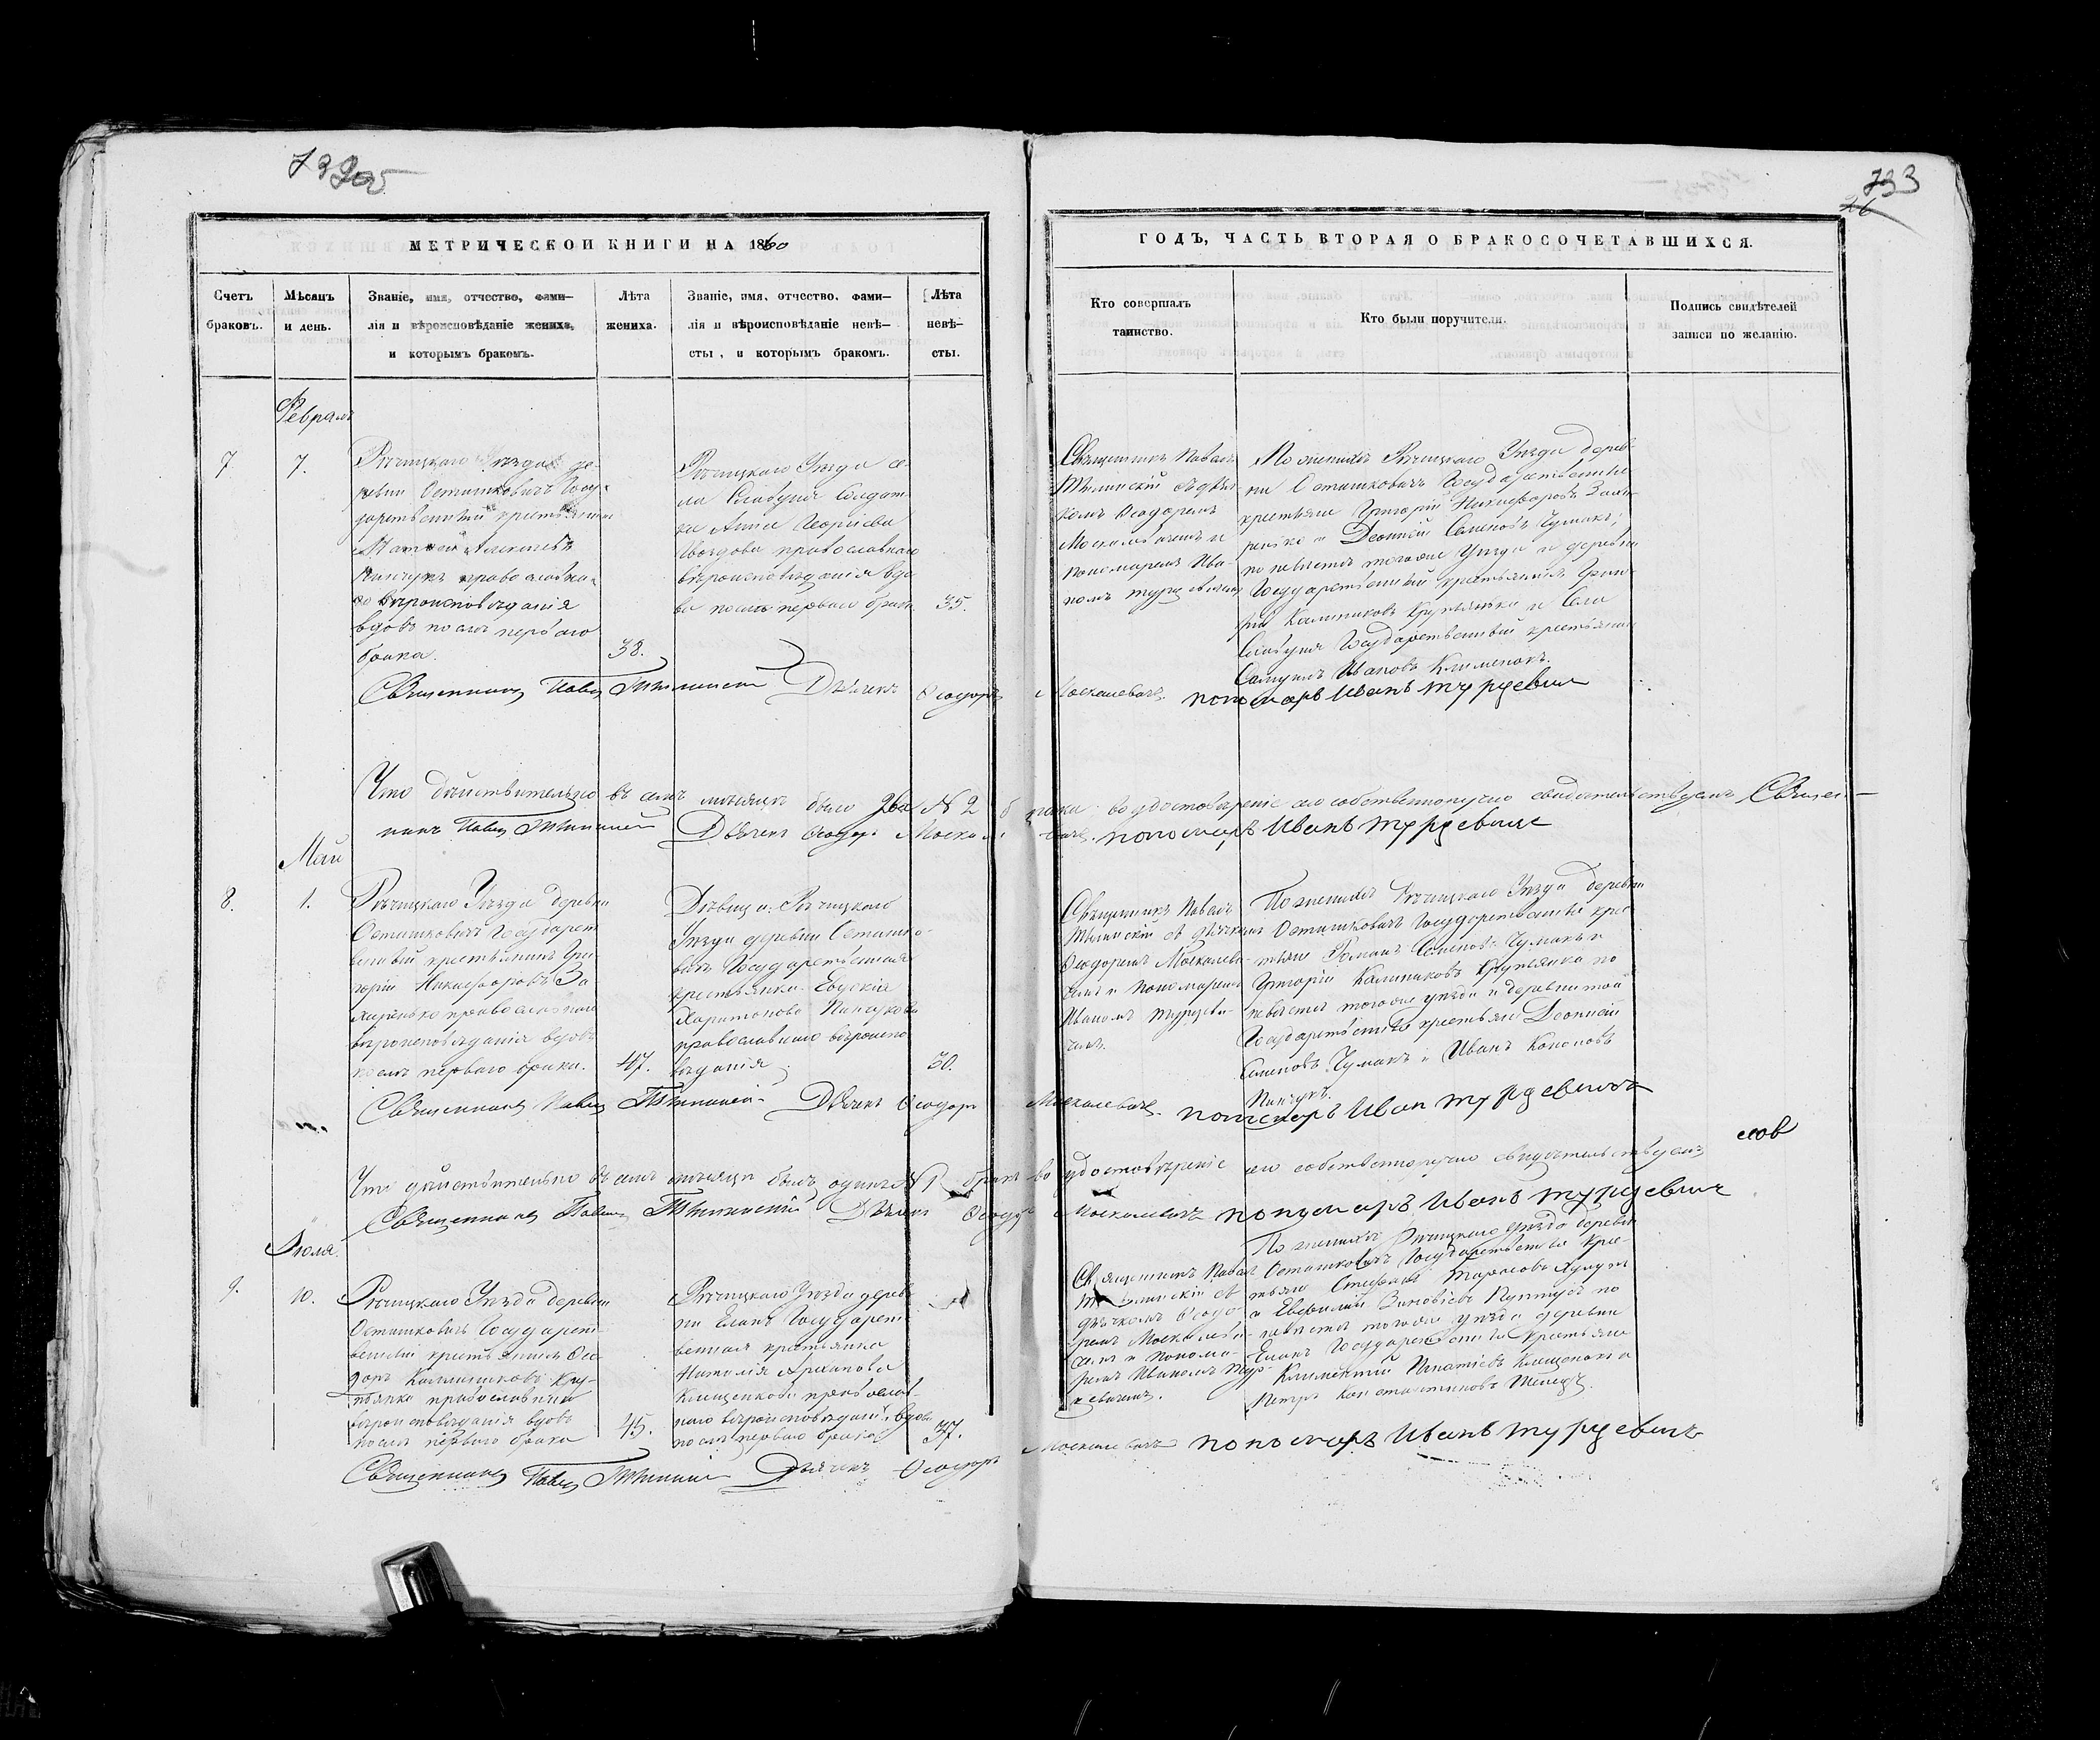 733
26
МЕТРИЧЕСКОЙ КНИГИ НА 1860
ГОДЪ, ЧАСТЬ ВТОРАЯ О БРАКОСОЧЕТАВШИХСЯ.
Счетъ
браковъ.
Мѣсяцъ
и день.
Званіе, имя, отчество, фами-
лія и вѣроисповѣданіе жениха,
и которымъ бракомъ.
Лѣта
жениха.
Званіе, имя, отчество, фами-
лія и вѣроисповѣданіе невѣ-
сты, и которымъ бракомъ.
Лѣта
невѣ-
сты.
Кто совершалъ
таинство.
Кто были поручители.
Подпись свидѣтелей
записи по желанію.
Февраль
7
7.
Рѣчицкаго Уѣзда де-
ревни Осташковичъ Госу-
дарственный крестьянинъ
Пинчукъ православна-
го вѣроисповѣданія
вдовъ послѣ перваго
брака.
38.
Рѣчицкаго Уѣзда се-
ла Солдат-
ка Анна Георгіева
православнаго
вѣроисповѣданія вдо
ва послѣ перваго брака
35.
Священникъ Павелъ
съ дьяч-
комъ Ѳеодоромъ
Москалевичемъ и
пономаремъ Ива-
номъ Турцевичемъ
По женихѣ Рѣчицкаго Уѣзда дерев-
ни Осташковичъ Государственные
крестьяне Григорій Никифоровъ Заха-
ренко и Деонисій Семеновъ Чумакъ;
по невѣстѣ тогоже Уѣзда и деревни
Государственный крестьянинъ Григо-
рій Калиниковъ Крупянка и Села
Государственный крестьянинъ
Ивановъ Клименокъ.
Священникъ Павелъ Дьячекъ Ѳеодоръ Москалевичъ. пономарь Иванъ Турцевичъ
Что дѣйствительно въ семъ мѣсяцѣ было два № 2 брака во удостовѣреніе сего собственноручно свидѣтельствуемъ Священ-
никъ Павелъ Дьячекъ Ѳеодоръ Москалевичъ. пономарь Иванъ Турцевичъ
Май
8.
1.
Рѣчицкаго Уѣзда деревни
Осташковичъ Государст
венный крестьянинъ Гри
горій Никифоровъ За
харенько православнаго
вѣроисповѣданія вдовъ
послѣ перваго брака.
47.
Дѣвица Рѣчицкаго
Уѣзда деревни Осташко-
вичъ Государственная
крестьянка
Харитонова Пинчукова
православнаго вѣроиспо
вѣданія
30.
Священникъ Павелъ
съ дьячкомъ
Ѳеодоромъ Москалеви-
чемъ и пономаремъ
Иваномъ Турцеви-
чемъ.
По женихѣ Рѣчицкаго Уѣзда деревни
Осташковичъ Государственные крес
тьяне Романъ Семеновъ Чумакъ и
Григорій Калиниковъ Крупянка по
невѣстѣ тогоже уѣзда и деревни той
Государственные крестьяне Деонисій
Семеновъ Чумакъ и Иванъ Кононовъ
Пинчукъ.
Священникъ Павелъ Дьячекъ Ѳеодоръ Москалевичъ. пономарь Иван Турцевичъ
Что дѣйствительно въ семъ мѣсяцѣ былъ одинъ № 1 бракъ во удостовѣреніе сего собственноручно свидѣтельствуемъ
Священникъ Павелъ Дьячекъ Ѳеодоръ Москалевичъ пономарь Иванъ Турцевичъ
Іюля.
9.
10.
Рѣчицкаго Уѣзда деревни
Осташковичъ Государст-
венный крестьянинъ Ѳео-
доръ Калиниковъ Кру-
пянка православнаго
вѣроисповѣданія вдовъ
послѣ перваго брака
45.
Рѣчицкаго Уѣзда дерев
ни Еланъ Государст-
венная крестьянка
Наталія Архипова
Клищенкова православ-
наго вѣроисповѣданія, вдова
послѣ перваго брака
37.
Священникъ Павелъ
съ
дьячкомъ Ѳеодо-
ромъ Москалеви-
чемъ и понома-
ремъ Иваномъ Тур-
цевичемъ.
По женихѣ Рѣчицкаго уѣзда деревни
Осташковичъ Государственные крес-
тьяне Стефанъ Тарасовъ
и Евфимій Зиновіевъ по
невѣстѣ тогоже уѣзда деревни
Еланъ Государственные крестьяне
Климентій Игнатіевъ Клищенокъ и
Петръ Константиновъ
Священникъ Павелъ Дьячекъ Ѳеодоръ Москалевичъ пономарь Иванъ Турцевичъ